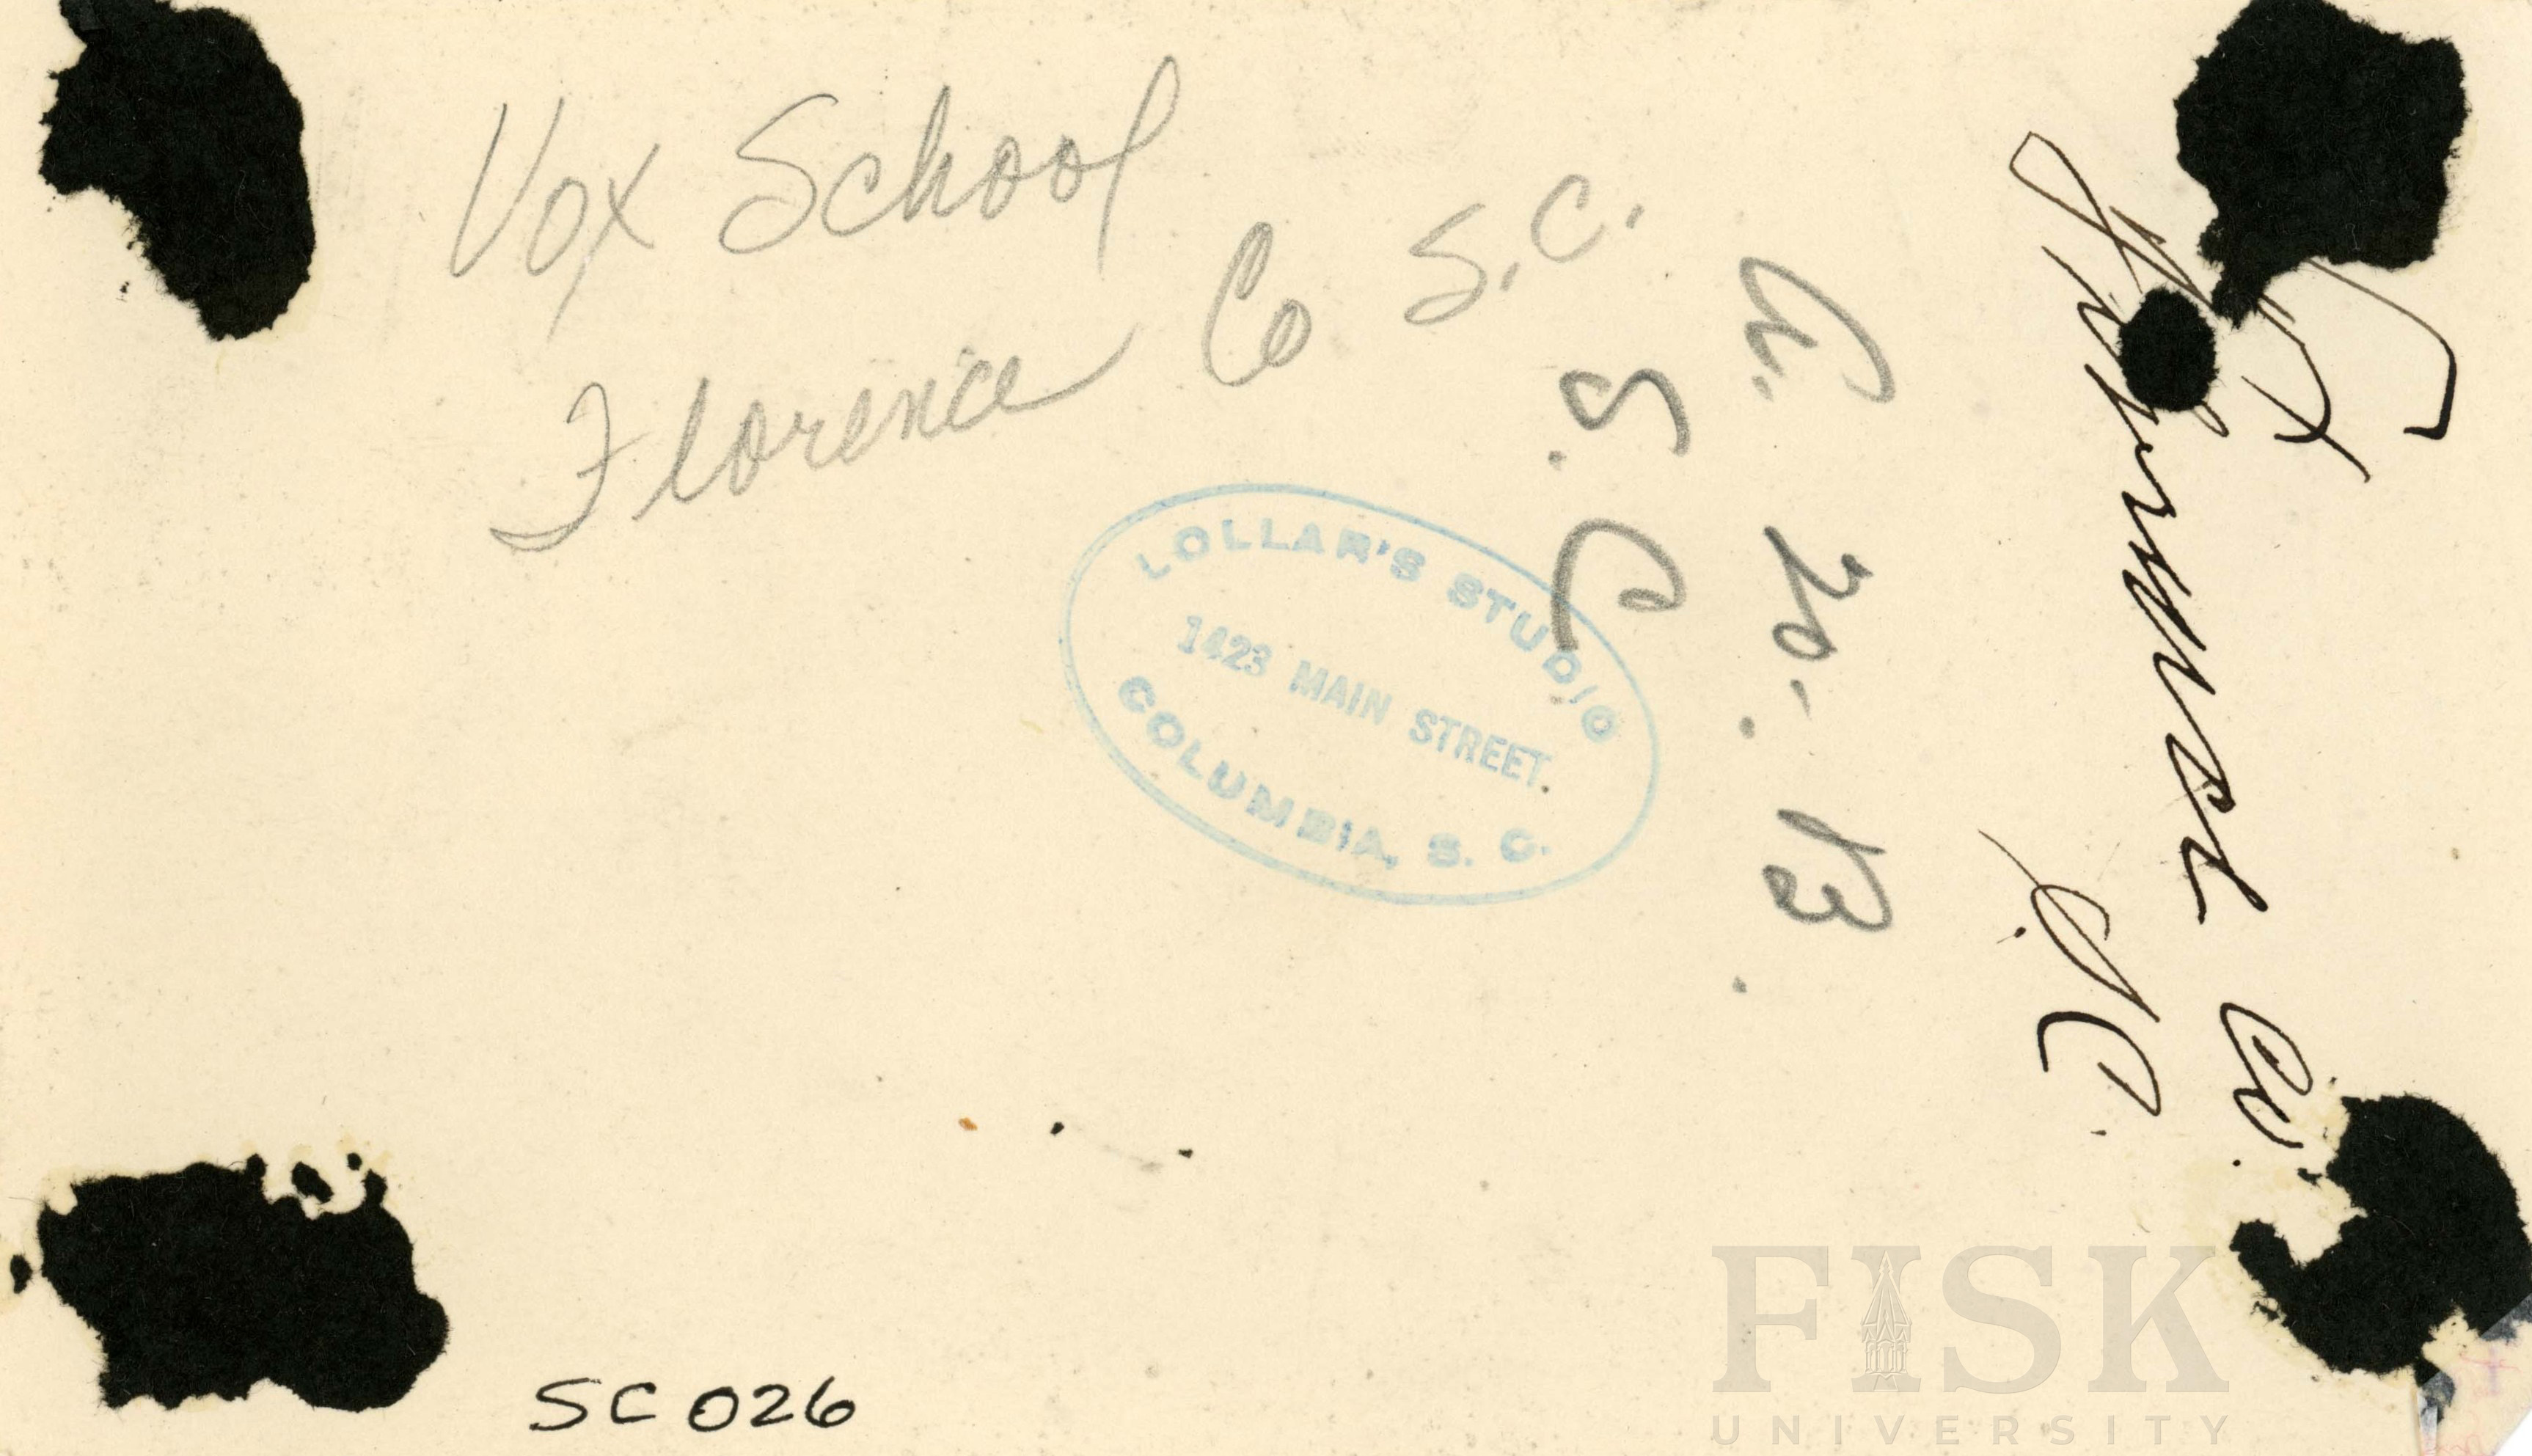 Vox School
Florence Co S.C.
LOLLAR'S STUDIO
1423 MAIN STREET.
COLUMBIA, S. C.
Co.
S.C.
20-. 13.
S.C
SC 026
FISK
UNIVERSITY